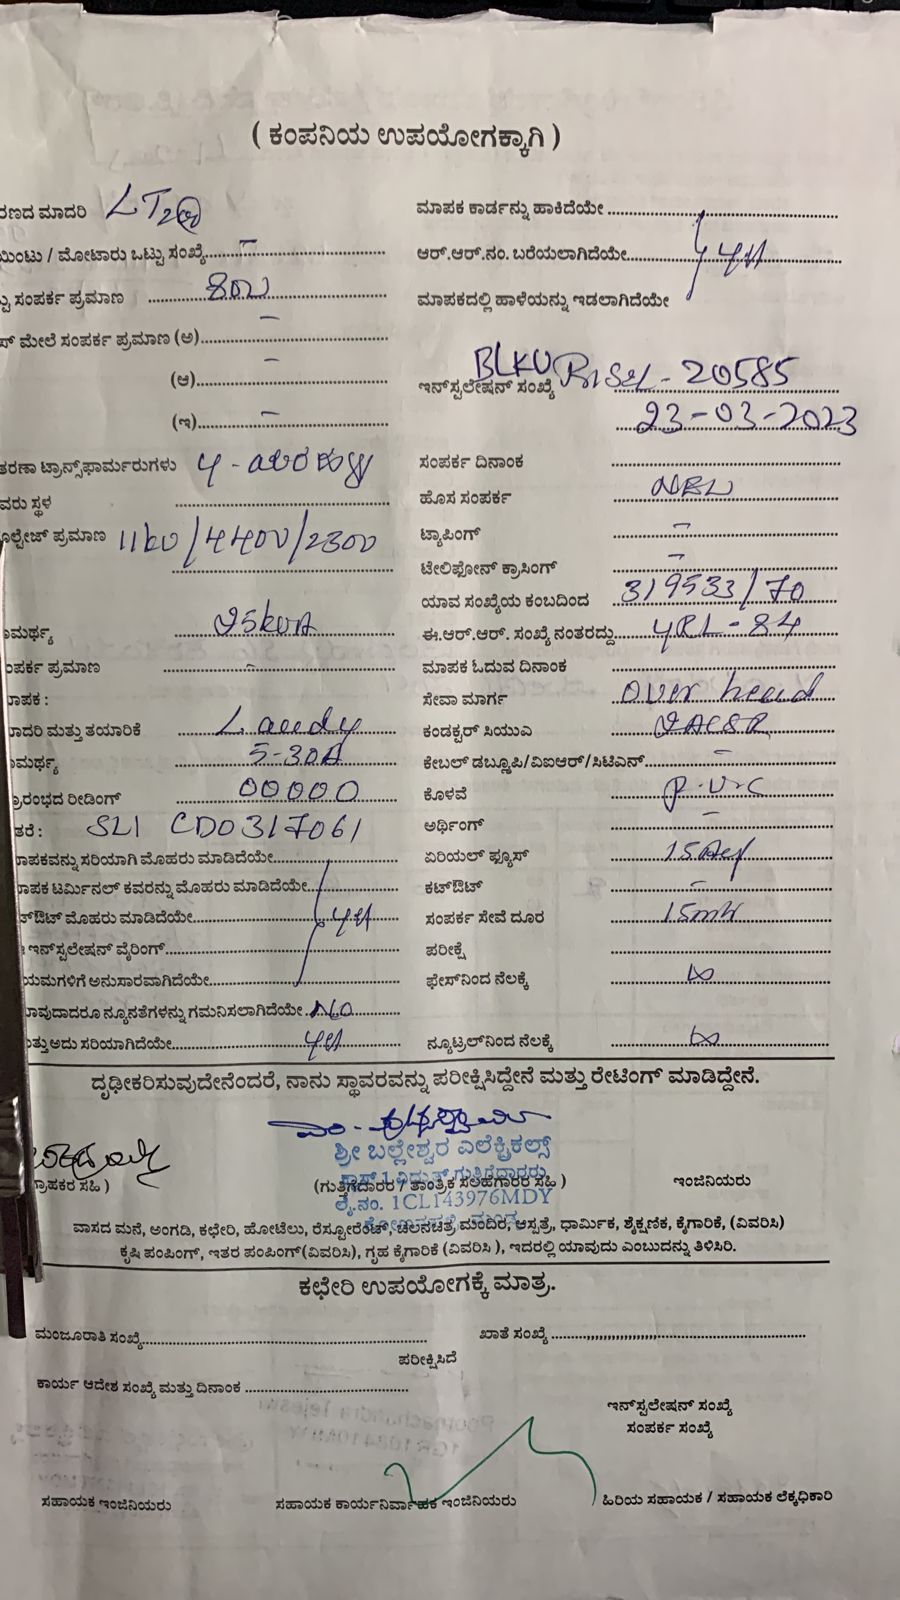 ( ಕಂಪನಿಯ ಉಪಯೋಗಕ್ಕಾಗಿ )
ರಣದ ಮಾದರಿ LT2
ಯಿಂಟು / ಮೋಟಾರು ಒಟ್ಟು ಸಂಖ್ಯೆ –
ಟ್ಟು ಸಂಪರ್ಕ ಪ್ರಮಾಣ
ಪ್ ಮೇಲೆ ಸಂಪರ್ಕ ಪ್ರಮಾಣ (ಅ) –
(ಆ) –
(ಇ) –
ತರಣಾ ಟ್ರಾನ್ಸ್‌ಫಾರ್ಮರುಗಳು
ವರು ಸ್ಥಳ
ೋಲ್ಟೇಜ್ ಪ್ರಮಾಣ /4400/2300
ಾಮರ್ಥ್ಯ 25kVA
ಂಪರ್ಕ ಪ್ರಮಾಣ –
ಾಪಕ :
ಾದರಿ ಮತ್ತು ತಯಾರಿಕೆ
ಾಮರ್ಥ್ಯ 5-30A
್ರಾರಂಭದ ರೀಡಿಂಗ್ 00000
ತರೆ : SLI CD0317061
ಾಪಕವನ್ನು ಸರಿಯಾಗಿ ಮೊಹರು ಮಾಡಿದೆಯೇ
ಾಪಕ ಟರ್ಮಿನಲ್ ಕವರನ್ನು ಮೊಹರು ಮಾಡಿದೆಯೇ
ಟ್‌ಔಟ್ ಮೊಹರು ಮಾಡಿದೆಯೇ
ಇನ್‌ಸ್ಪಲೇಷನ್ ವೈರಿಂಗ್
ಯಮಗಳಿಗೆ ಅನುಸಾರವಾಗಿದೆಯೇ
ಾವುದಾದರೂ ನ್ಯೂನತೆಗಳನ್ನು ಗಮನಿಸಲಾಗಿದೆಯೇ No
ತ್ತು ಅದು ಸರಿಯಾಗಿದೆಯೇ
ಮಾಪಕ ಕಾರ್ಡನ್ನು ಹಾಕಿದೆಯೇ
ಆರ್.ಆರ್.ನಂ. ಬರೆಯಲಾಗಿದೆಯೇ
ಮಾಪಕದಲ್ಲಿ ಹಾಳೆಯನ್ನು ಇಡಲಾಗಿದೆಯೇ
ಇನ್‌ಸ್ಪಲೇಷನ್ ಸಂಖ್ಯೆ 20585
23-03-2023
ಸಂಪರ್ಕ ದಿನಾಂಕ
ಹೊಸ ಸಂಪರ್ಕ NEW
ಟ್ಯಾಪಿಂಗ್ –
ಟೇಲಿಫೋನ್ ಕ್ರಾಸಿಂಗ್ –
ಯಾವ ಸಂಖ್ಯೆಯ ಕಂಬದಿಂದ 319533/70
ಈ.ಆರ್.ಆರ್. ಸಂಖ್ಯೆ ನಂತರದ್ದು YRL-84
ಮಾಪಕ ಓದುವ ದಿನಾಂಕ
ಸೇವಾ ಮಾರ್ಗ Over head
ಕಂಡಕ್ಟರ್ ಸಿಯುಎ
ಕೇಬಲ್ ಡಬ್ಲೂಪಿ/ವಿಐಆರ್/ಸಿಟಿಎನ್ –
ಕೊಳವೆ P.V.C
ಅರ್ಥಿಂಗ್ –
ಏರಿಯಲ್ ಫ್ಯೂಸ್
ಕಟ್‌ಔಟ್ –
ಸಂಪರ್ಕ ಸೇವೆ ದೂರ
ಪರೀಕ್ಷೆ
ಫೇಸ್‌ನಿಂದ ನೆಲಕ್ಕೆ ∞
ನ್ಯೂಟ್ರಲ್‌ನಿಂದ ನೆಲಕ್ಕೆ ∞
ದೃಢೀಕರಿಸುವುದೇನೆಂದರೆ, ನಾನು ಸ್ಥಾವರವನ್ನು ಪರೀಕ್ಷಿಸಿದ್ದೇನೆ ಮತ್ತು ರೇಟಿಂಗ್ ಮಾಡಿದ್ದೇನೆ.
ಶ್ರೀ ಬಲ್ಲೇಶ್ವರ ಎಲೆಕ್ಟ್ರಿಕಲ್ಸ್
ಕ್ಲಾಸ್-1 ವಿದ್ಯುತ್ ಗುತ್ತಿಗೆದಾರರು
್ರಾಹಕರ ಸಹಿ ) (ಗುತ್ತಿಗೆದಾರರ / ತಾಂತ್ರಿಕ ಸಲಹಗಾರರ ಸಹಿ ) ಇಂಜಿನಿಯರು
ಲೈ.ನಂ. 1CL143976MDY
ವಾಸದ ಮನೆ, ಅಂಗಡಿ, ಕಛೇರಿ, ಹೋಟೆಲು, ರೆಸ್ಟೋರೆಂಟ್, ಚಲನಚಿತ್ರ ಮಂದಿರ, ಆಸ್ಪತ್ರೆ, ಧಾರ್ಮಿಕ, ಶೈಕ್ಷಣಿಕ, ಕೈಗಾರಿಕೆ, (ವಿವರಿಸಿ)
ಕೃಷಿ ಪಂಪಿಂಗ್, ಇತರ ಪಂಪಿಂಗ್(ವಿವರಿಸಿ), ಗೃಹ ಕೈಗಾರಿಕೆ (ವಿವರಿಸಿ ), ಇದರಲ್ಲಿ ಯಾವುದು ಎಂಬುದನ್ನು ತಿಳಿಸಿರಿ.
ಕಛೇರಿ ಉಪಯೋಗಕ್ಕೆ ಮಾತ್ರ.
ಮಂಜೂರಾತಿ ಸಂಖ್ಯೆ ಖಾತೆ ಸಂಖ್ಯೆ
ಪರೀಕ್ಷಿಸಿದೆ
ಕಾರ್ಯ ಆದೇಶ ಸಂಖ್ಯೆ ಮತ್ತು ದಿನಾಂಕ
ಇನ್‌ಸ್ಪಲೇಷನ್ ಸಂಖ್ಯೆ
ಸಂಪರ್ಕ ಸಂಖ್ಯೆ
ಸಹಾಯಕ ಇಂಜಿನಿಯರು ಸಹಾಯಕ ಕಾರ್ಯನಿರ್ವಾಹಕ ಇಂಜಿನಿಯರು ಹಿರಿಯ ಸಹಾಯಕ / ಸಹಾಯಕ ಲೆಕ್ಕಧಿಕಾರಿ